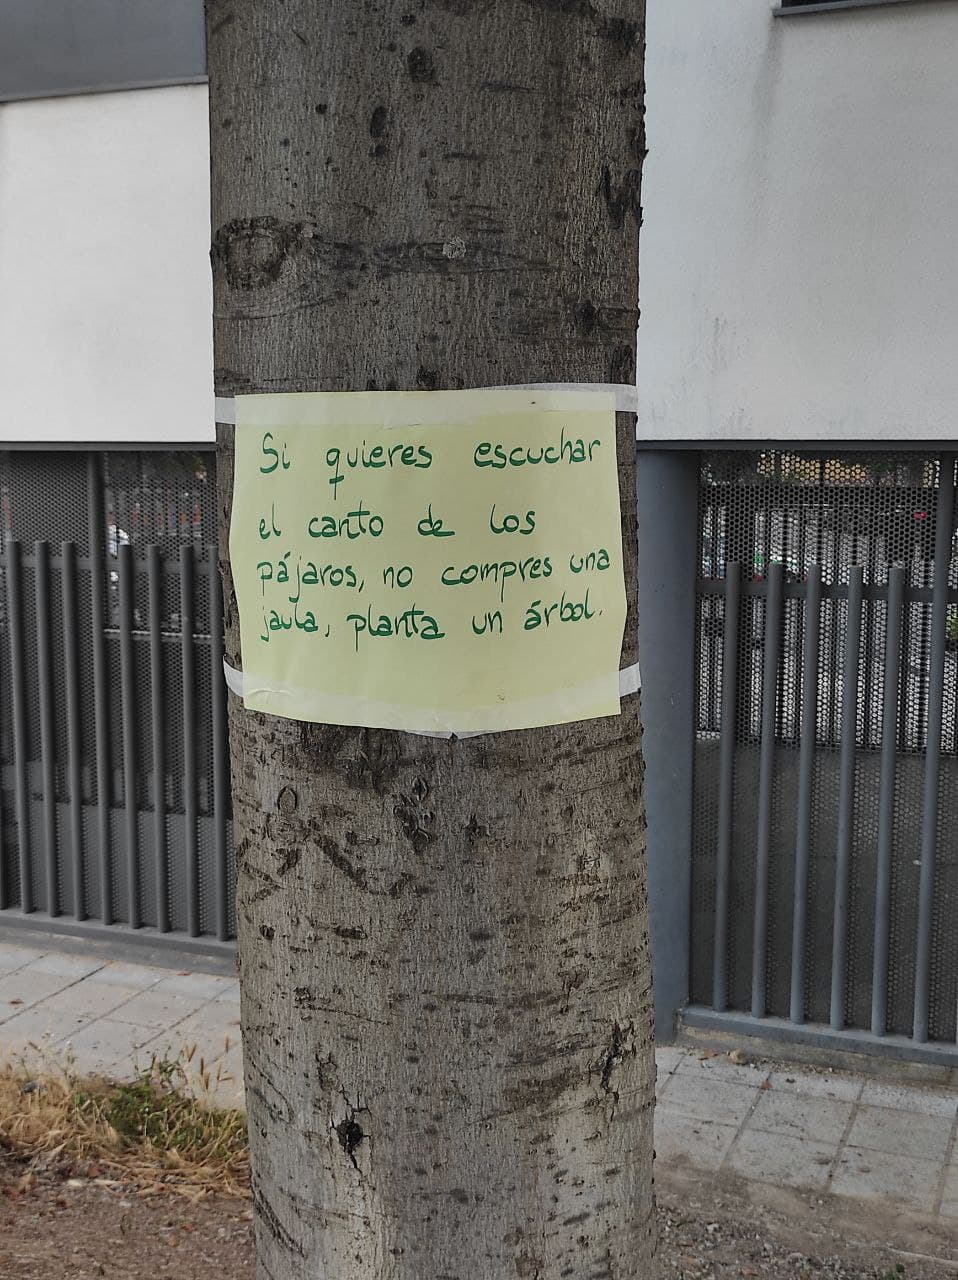 Si quieres escuchar
el canto de los
pájaros, no compres una
jaula, planta un árbol.